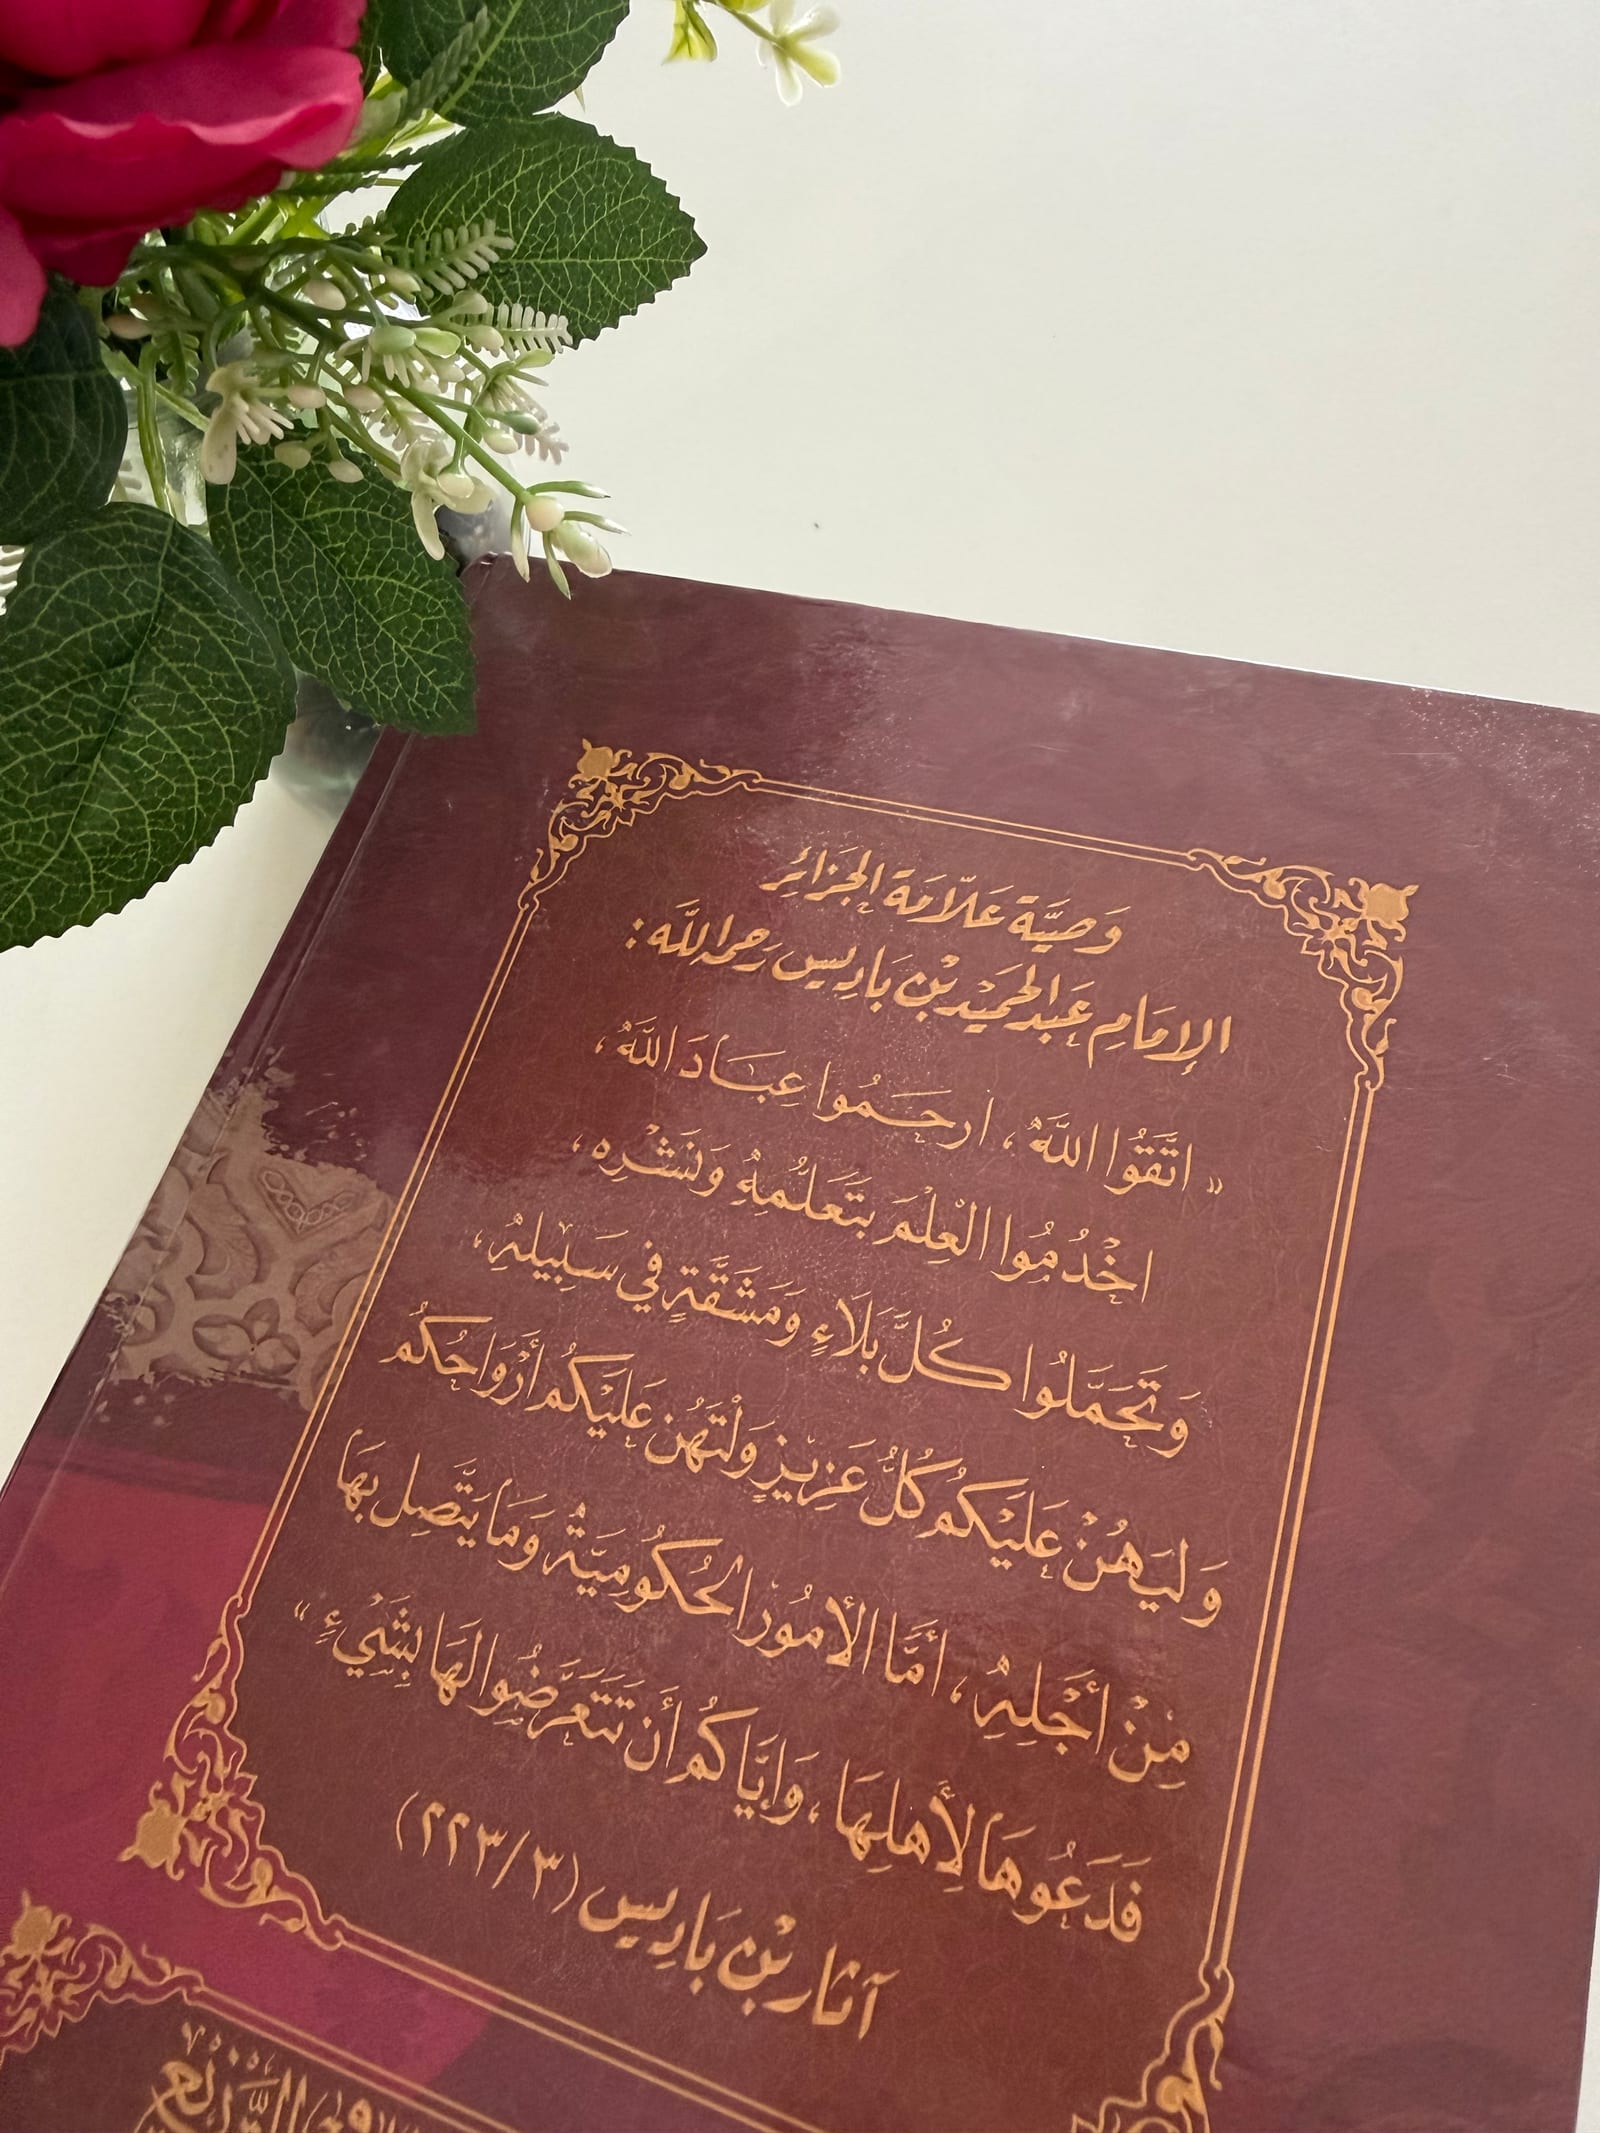 وَصِيَّة عَلّامَة الجَزائِر
الإمَامِ عَبد الحَمِيْد بْن بَادِيس رَحمه اللَّه :
« اتَّقُوا اللَّهَ ، ارحَمُوا عِبَادَ اللَّهُ ،
اخْدُمُوا العِلْمَ بتَعَلُّمِهِ وَنَشْرِه ،
وَتَحَمَّلُوا كُلَّ بَلَاءٍ وَمَشَقَّةٍ في سَبِيلهِ ،
وَليَهُنْ عَليَكُم كُلُّ عَزِيزٍ وَلْتَهُن عَليَكُم أرْوَاحُكُم
مِنْ أجْلِهِ ، أمَّا الأمُوْر الحُكُومِيَّةُ وَمَا يَتَّصِل بهَا
فَدَعُوهَا لِأَهلِهَا ، وَإيَّاكُم أن تَتَعَرَّضُوا لهَا بِشَيْءٍ »
آثار بْن بَادِيس (٢٢٣/٣)